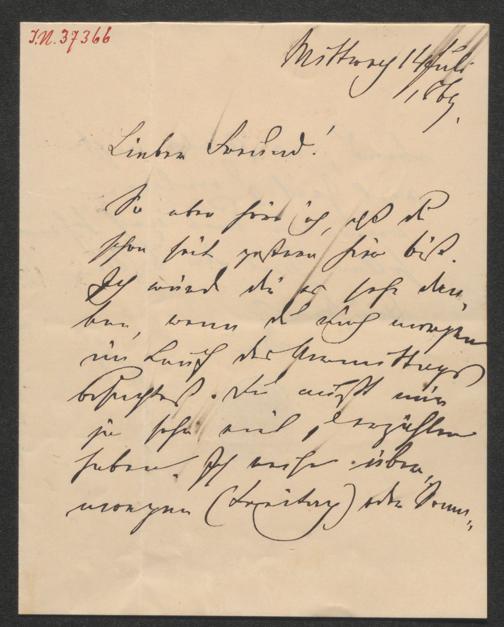 I.N. 37366
Mittwoch 14 Juli
1869.
Lieber Freund!
So eben höre ich, daß du
schon seit gestern hier bist.
Ich würde dir es sehr dan„
ken, wenn du mich morgen
im Lauf des Vormittags
besuchtest. Du mußt mir
ja sehr viel zu erzählen
haben. Ich reise über„
morgen (Freitag) oder Sonn„